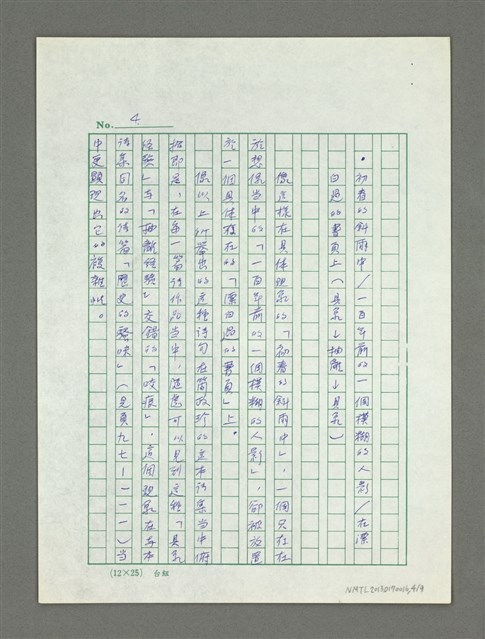 No. 4
・初春的斜雨中/一百年前的一個模糊的人影/在漂
白過的書頁上（具象→抽離→具象）
像這樣在具體現象的「初春的斜雨中」，一個只存在
於想像當中的「一百年前的一個模糊的人影」，卻被放置
於一個具體存在的「漂白過的書頁」上。
像以上所舉出的這種詩句在簡政珍的這本詩集當中俯
拾即是，在每一篇詩作的當中，隨處可以見到這種「具象
經驗」與「抽離經驗」交錯的「咬痕」，這個現象在與本
詩集同名的詩篇「歷史的騷味」（見頁九七-一一一）當
中更顯現出它的複雜性。
(12×25) 台組
NMTL20130170016_4/9